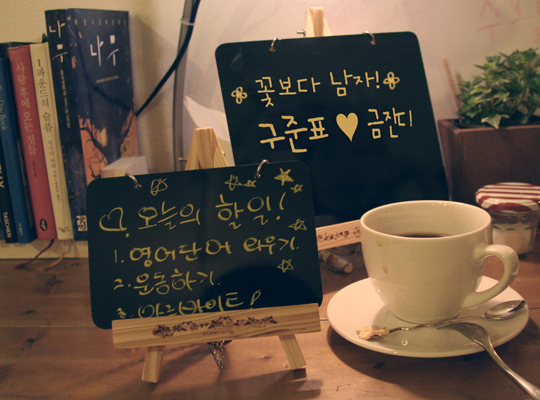 꽃보다 남자!
구준표 ♥ 금잔디
♡. 오늘의 할일!
1. 영어단어 외우기.
2. 운동하기.
3. 아르바이트
나무
나무
사랑 후에 오는 것들
1파운드의 슬픔
TASCHEN